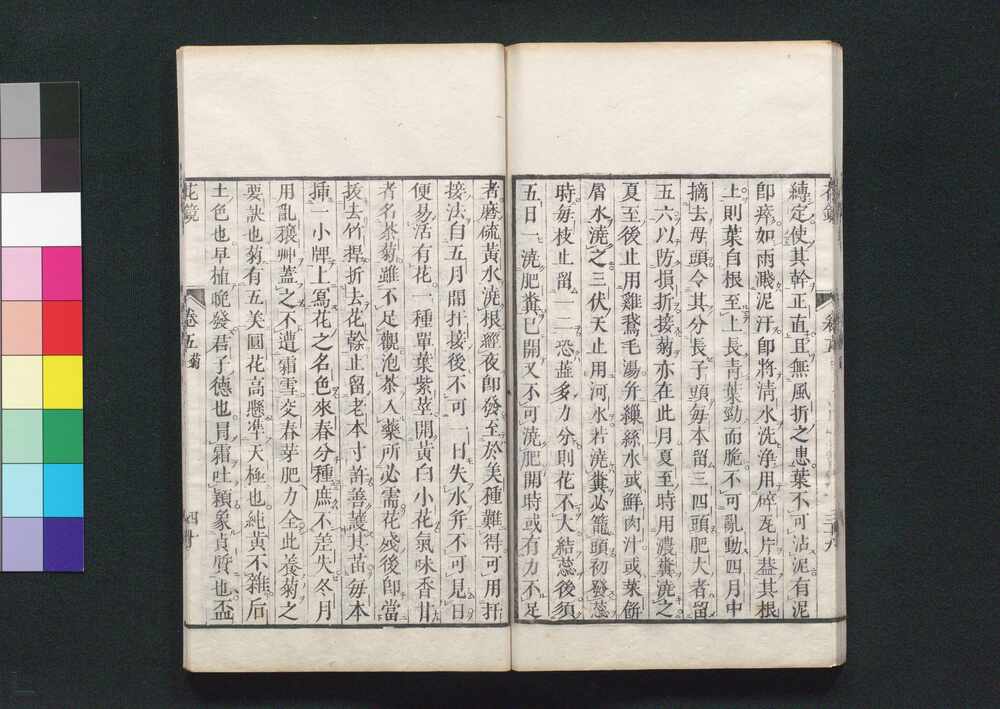 縛定使其幹正直且無風折之患葉不可沾泥有泥
卽瘁如雨濺泥汙卽將淸水洗淨用碎瓦片葢其根
上則葉自根至上長靑葉勁而脆不可亂動四月中
摘去母頭令其分長子頭每本留三四頭肥大者留
五六以防損折接菊亦在此月夏至時用濃糞澆之
夏至後止用雞鵞毛湯幷繅絲水或鮮肉汁或菜餅
屑水澆之三伏天止用河水若澆糞必籠頭初發蕊
時每枝止留一二恐蕋多力分則花不大結蕊後須
五日一澆肥糞已開又不可澆肥開時或有力不足
者磨硫黃水澆根經夜卽發至於美種難得可用扦
接法自五月間扦接後不可一日失水幷不可見日
便易活有花一種單葉紫莖開黃白小花氣味香甘
者名茶菊雖不足觀泡茶入藥所必需花殘後卽當
拔去竹捍折去花幹止留老本寸許善護其苗每本
揷一小牌上寫花之名色來春分種庶不差失冬月
用亂穰艸蓋之不遭霜雪交春芽肥力全此養菊之
要訣也菊有五美圓花高懸準天極也純黃不雜后
土色也早植晚發君子德也冐霜吐穎象貞質也盃
花鏡
卷五 菊
四十